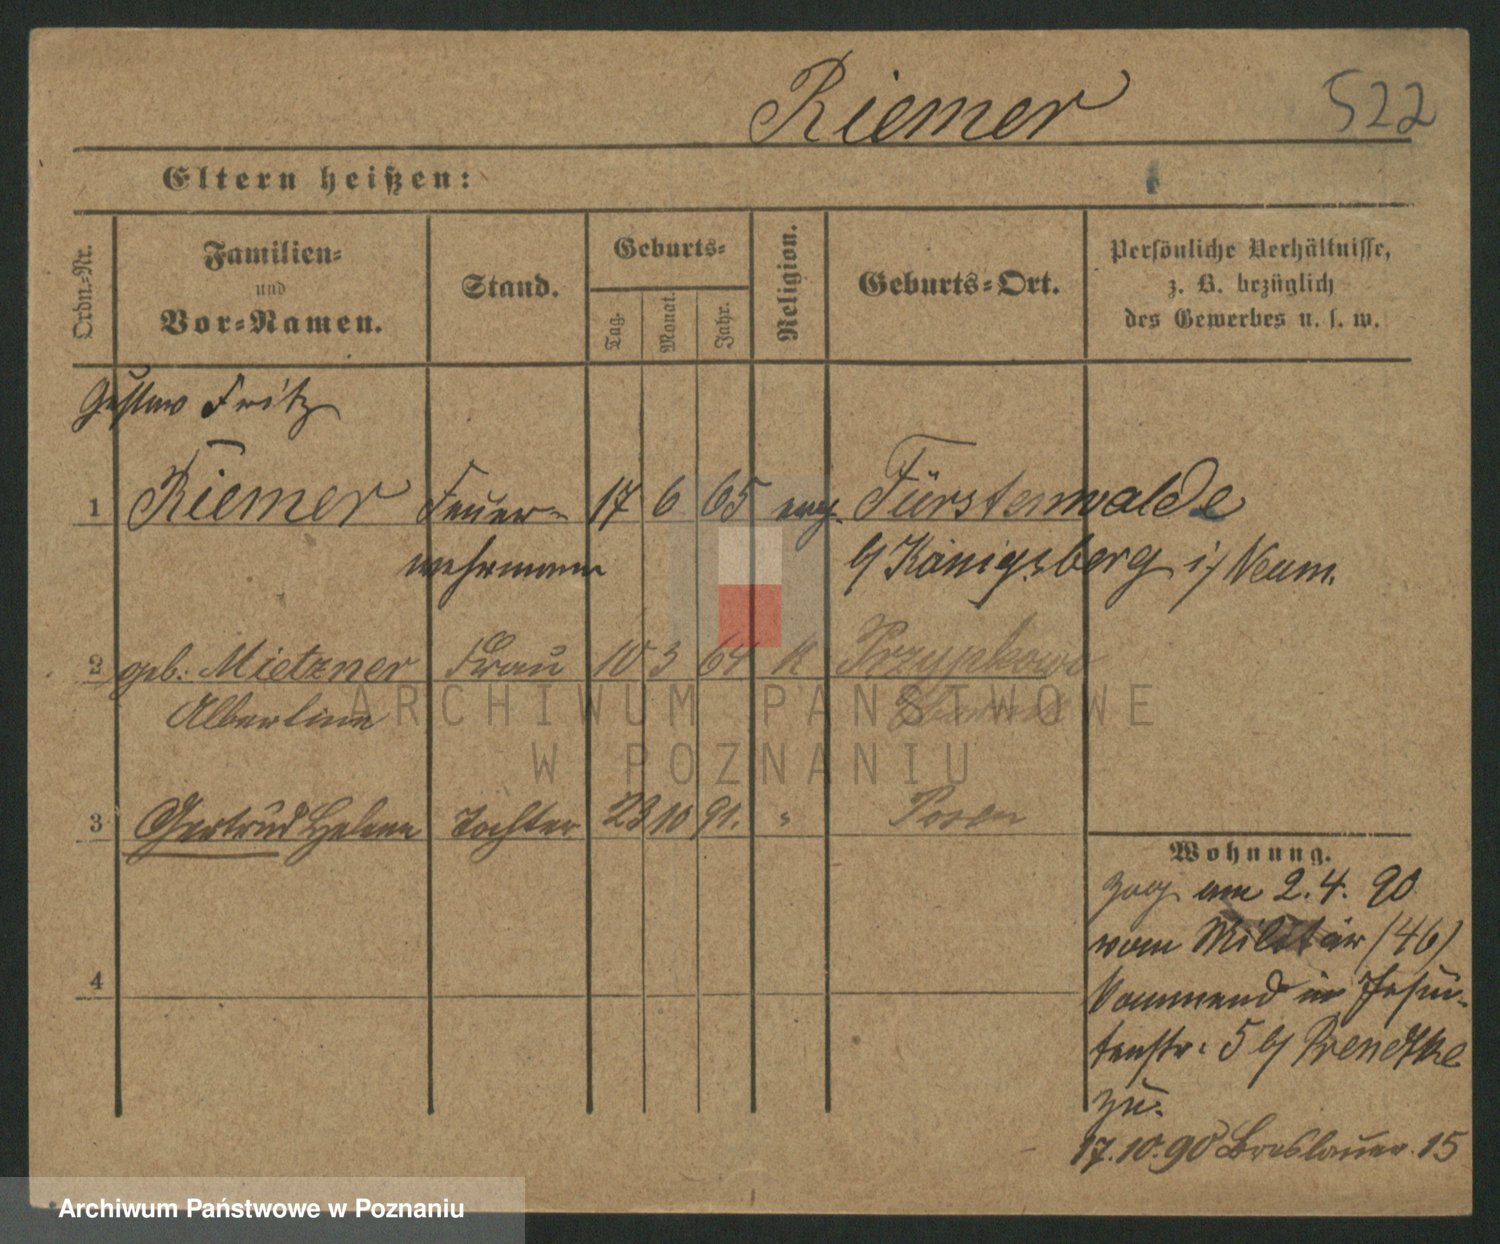 Riemer 522
Eltern heißen:
Ordn.-Nr.
Familien-
und
Vor-Namen.
Stand.
Geburts-
Tag.
Monat.
Jahr.
Religion.
Geburts-Ort.
Persönliche Verhältnisse,
z. B. bezüglich
des Gewerbes u. s. w.
Gustav Fritz
1 Riemer Feuer- 17 6 65 evg. Fürstenwalde
wehrmann b/ Königsberg i/ Neum.
2 geb. Mietzner Frau 10 3 64 k Przypkowo
Albertine
3 Gertrud Helene Tochter 23 10 91. " Posen
4
Wohnung.
zog am 2.4.90
vom Militär (46)
kommend in Jesui-
tenstr. 5 b/
zu.
17.10.90 Breslauer 15
ARCHIWUM PAŃSTWOWE
W POZNANIU
Archiwum Państwowe w Poznaniu